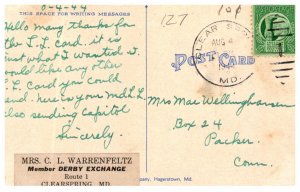 8-4-44
THIS SPACE FOR WRITING MESSAGES
Hello Many thanks for
the L.L. card, it is
just what I wanted. I
would like any other
L.L. Card you could
send. here is your Md L.L.
also sending Capitol
Sincerely.
MRS. C. L. WARRENFELTZ
Member DERBY EXCHANGE
Route 1
CLEARSPRING MD.
127
10¢
POST CARD
CLEAR SPRING
AUG 4
MD.
Mrs Mae Wellinghausen
Box 24
Packer.
Conn.
pany, Hagerstown, Md.